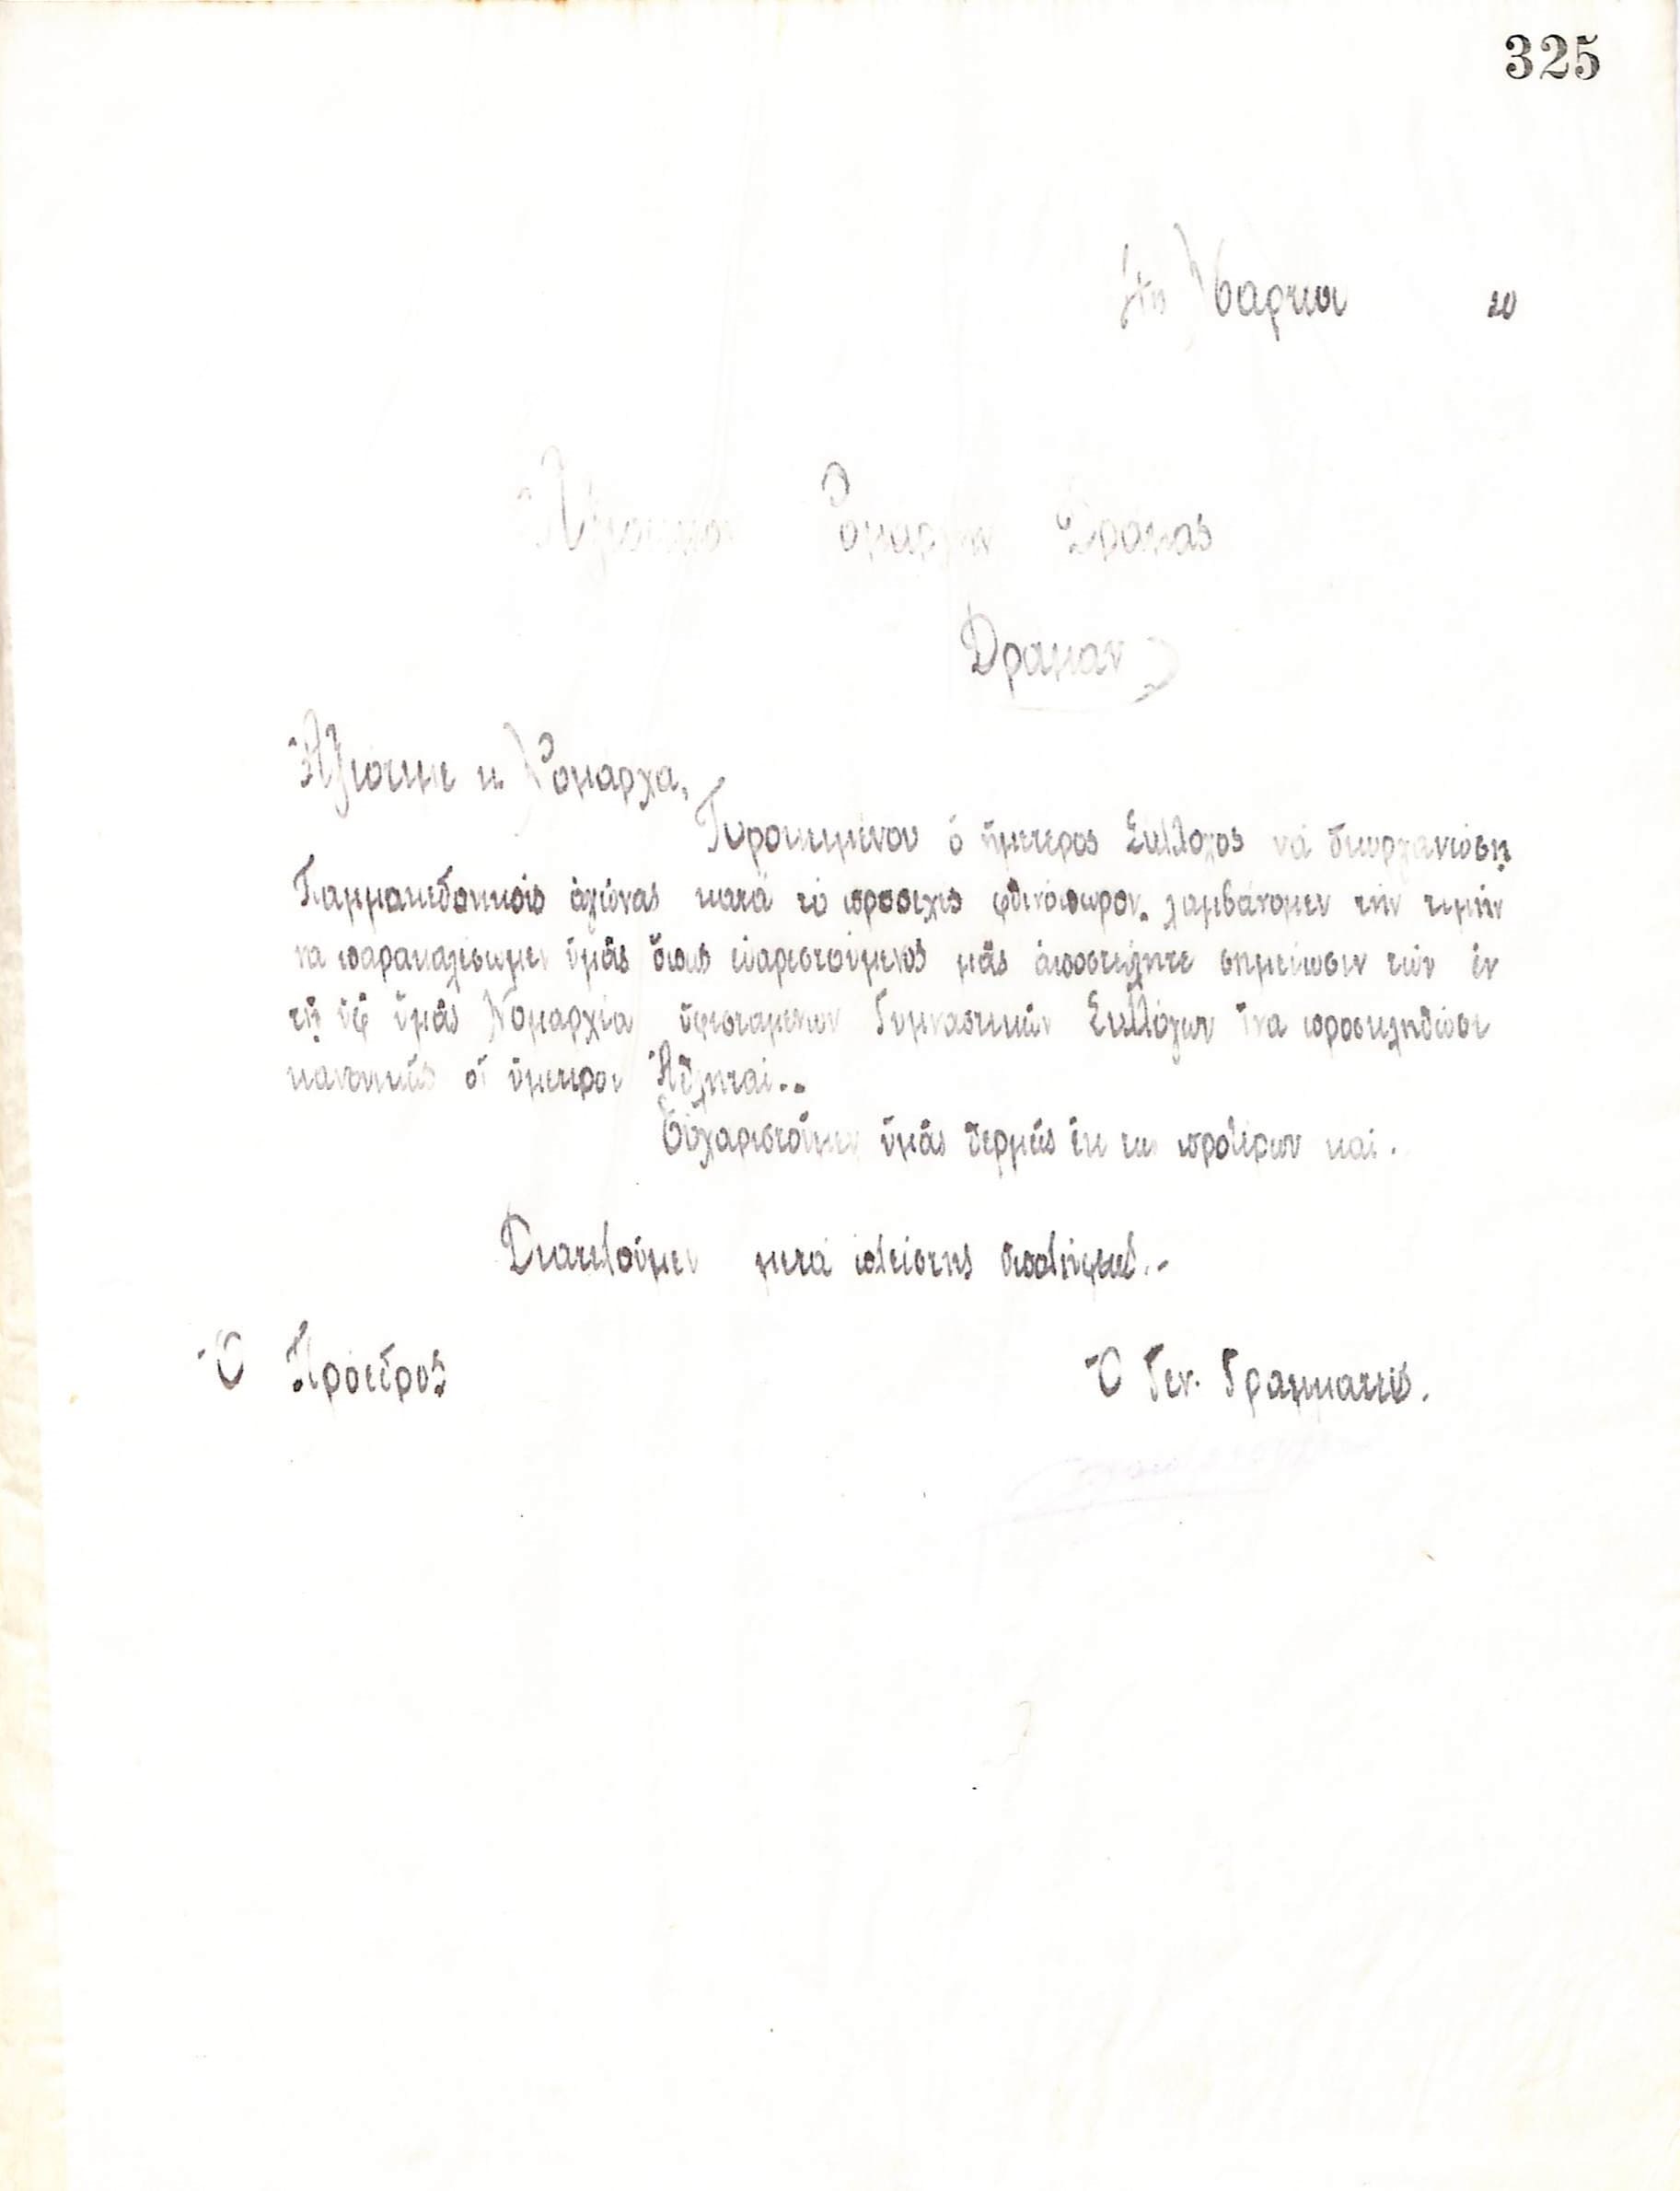 325
Μαρτίου 20
Ἀξιότιμον Νομάρχην Δράμας
Δράμαν
Ἀξιότιμε κ Νομάρχα,
Προκειμένου ὁ ἡμέτερος Σύλλογος νά διοργανώσῃ
Παμμακεδονικούς ἀγώνας κατά τό προσεχές φθινόπωρον, λαμβάνομεν τήν τιμήν
νά παρακαλέσωμεν ὑμᾶς ὅπως εὐαρεστούμενος μᾶς ἀποστείλητε σημείωσιν τῶν ἐν
τῇ ὑφ ὑμᾶς Νομαρχία ὑφισταμένων Γυμναστικῶν Συλλόγων ἵνα προσκληθῶσι
κανονικῶς οἱ ὑμέτεροι Ἀθληταί..
Εὐχαριστοῦμεν ὑμᾶς θερμῶς ἐκ των προτέρων καί.
Διατελοῦμεν μετά πλείστης ὑπολήψεως.-
Ὁ Πρόεδρος Ὁ Γεν. Γραμματεύς.